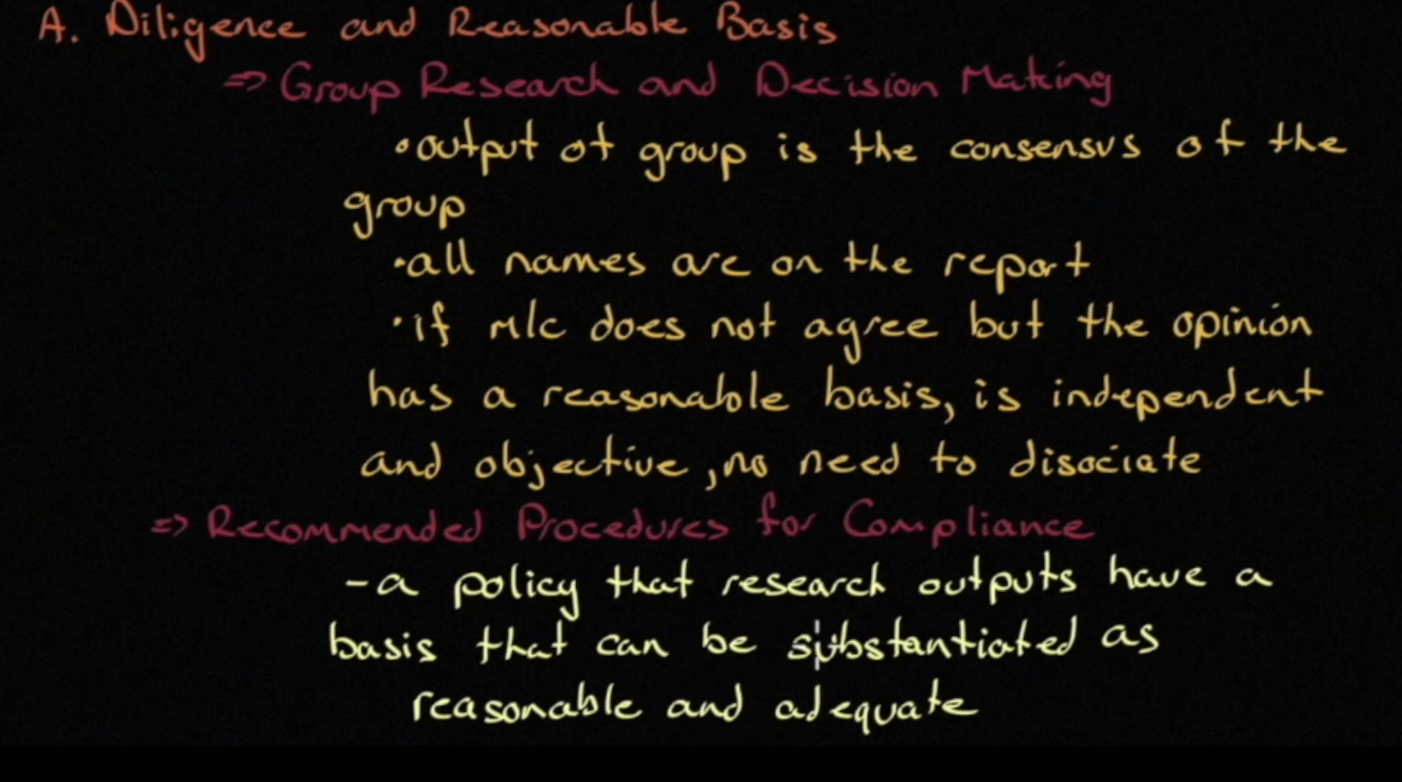 A. Diligence and Reasonable Basis
=> Group Research and Decision Making
• output of group is the consensus of the
group
• all names are on the report
• if M/c does not agree but the opinion
has a reasonable basis, is independent
and objective, no need to disociate
=> Recommended Procedures for Compliance
- a policy that research outputs have a
basis that can be substantiated as
reasonable and adequate